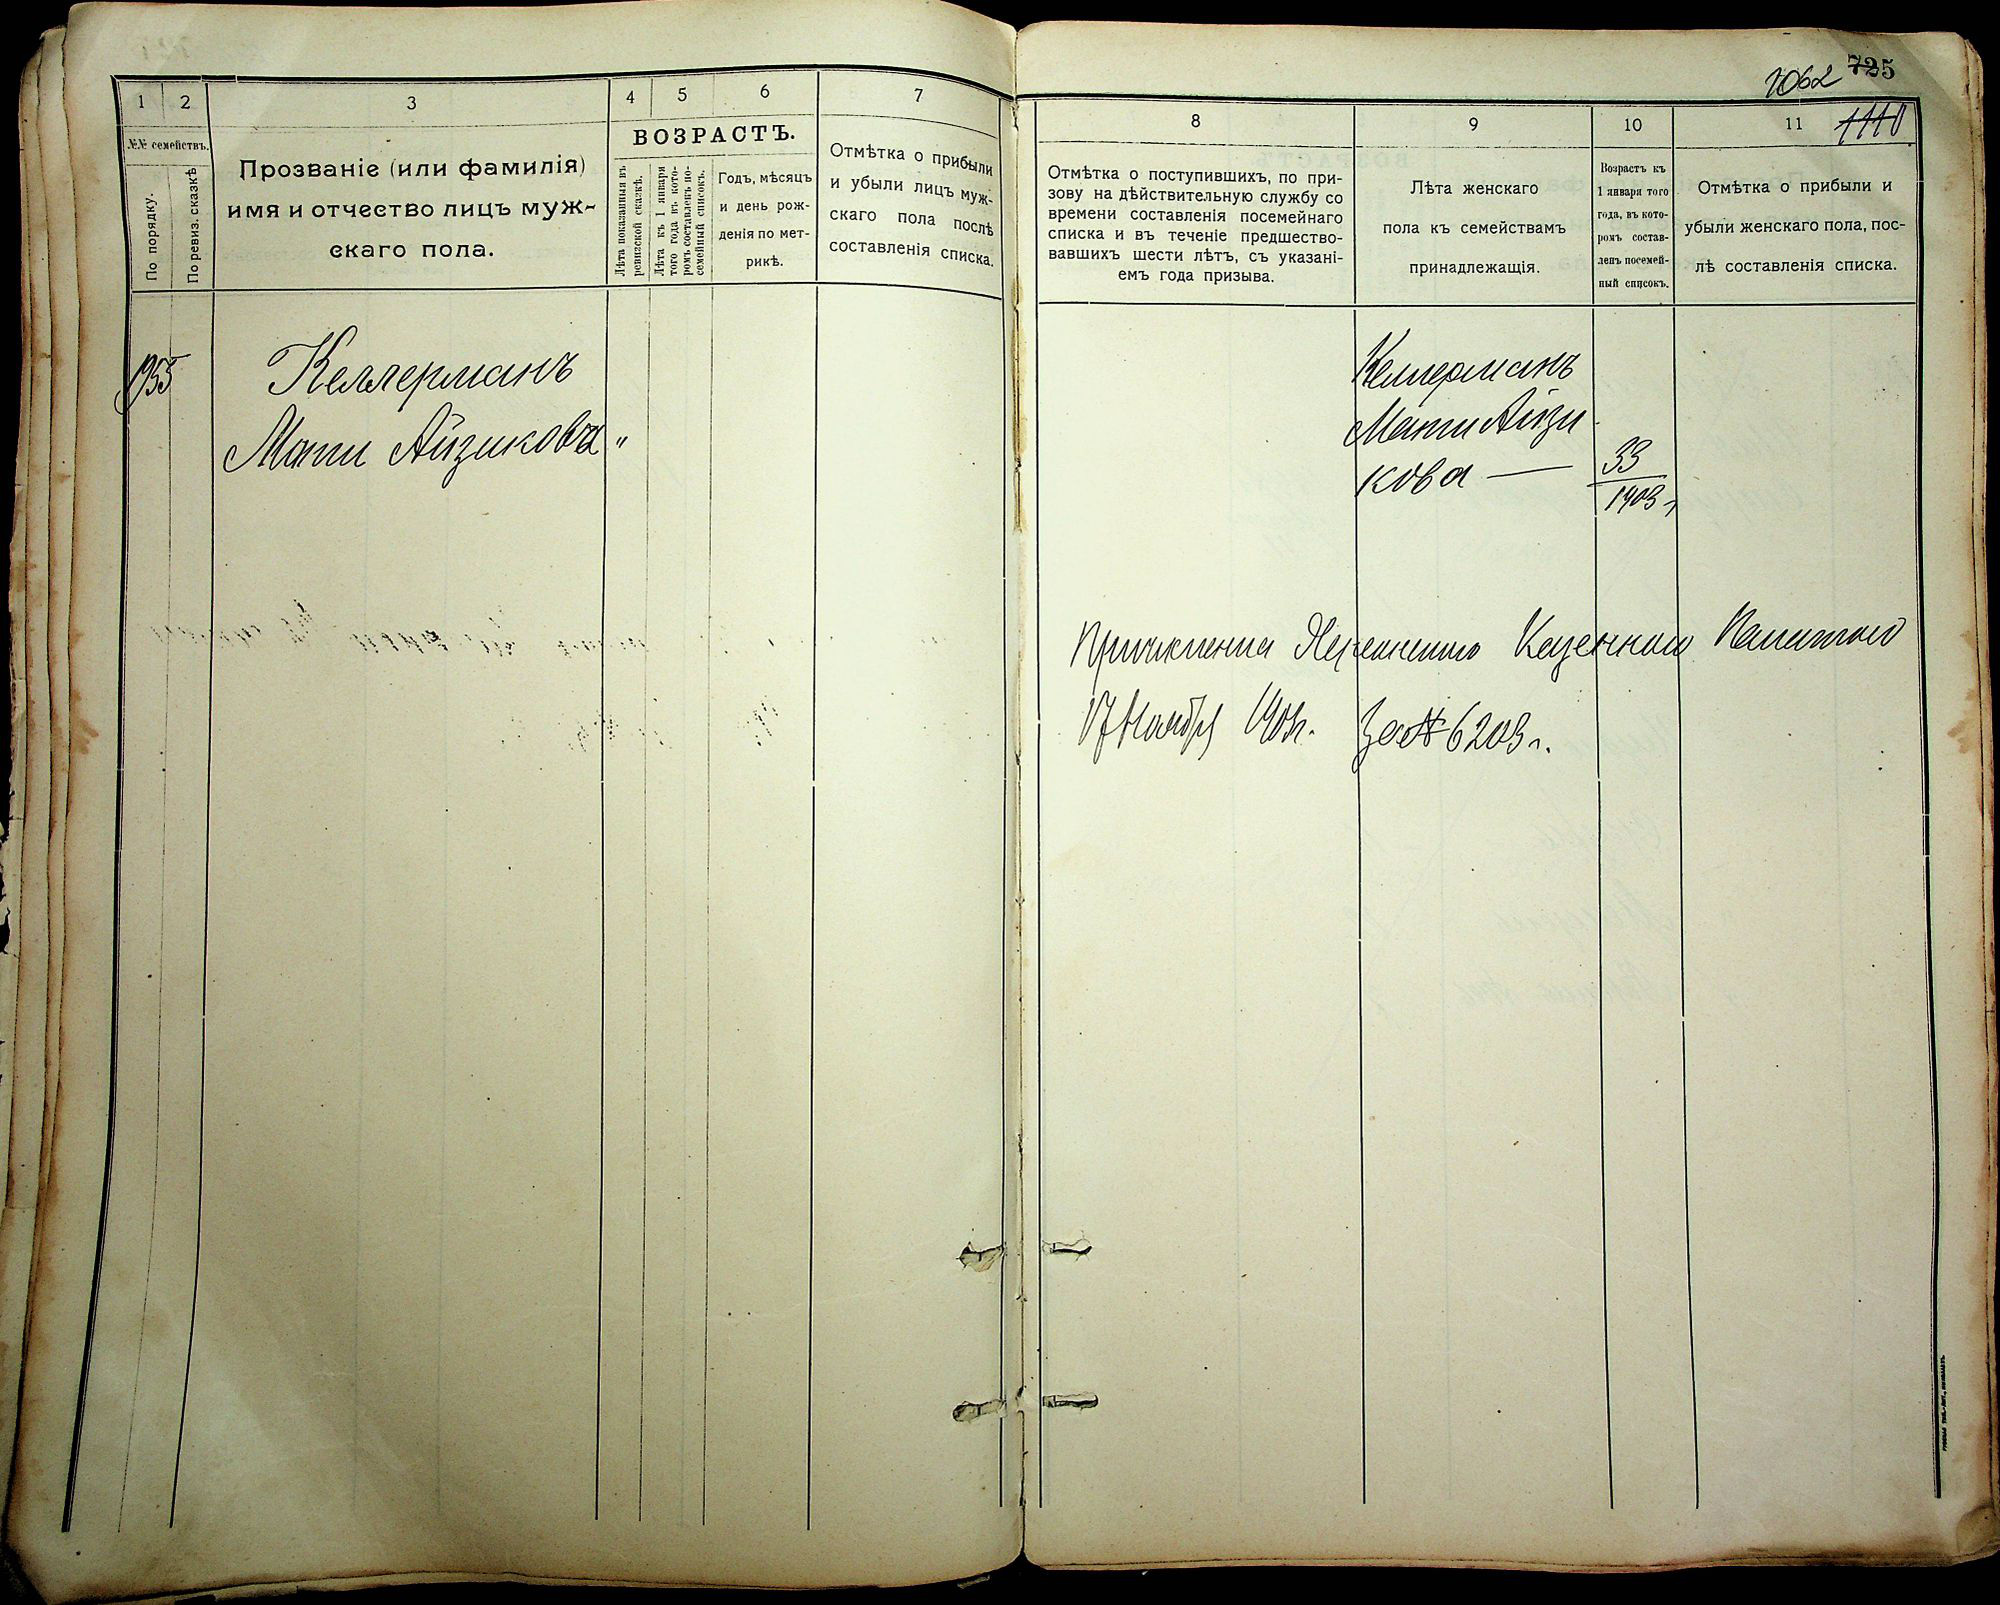 1 2 3 4 5 6 7
№№ семействъ.
По порядку.
По ревиз. сказкѣ
Прозваніе (или фамилія)
имя и отчество лицъ муж-
скаго пола.
ВОЗРАСТЪ.
Лѣта показанныя въ
ревизской сказкѣ.
Лѣта къ 1 января
того года въ кото-
ромъ составленъ по-
семейный списокъ.
Годъ, мѣсяцъ
и день рож-
денія по мет-
рикѣ.
Отмѣтка о прибыли
и убыли лицъ муж-
скаго пола послѣ
составленія списка.
Келлерманъ
Мати Айзикова "
725
1062
1110
8 9 10 11
Отмѣтка о поступившихъ, по при-
зову на дѣйствительную службу со
времени составленія посемейнаго
списка и въ теченіе предшество-
вавшихъ шести лѣтъ, съ указані-
емъ года призыва.
Лѣта женскаго
пола къ семействамъ
принадлежащія.
Возрастъ къ
1 января того
года, въ кото-
ромъ состав-
ленъ посемей-
ный списокъ.
Отмѣтка о прибыли и
убыли женскаго пола, пос-
лѣ составленія списка.
Келлерманъ
Мати Айзи
кова — 33
1903 г
Причислена Херсонскою Казенною Палатою
17 Ноября За № 6203 г.